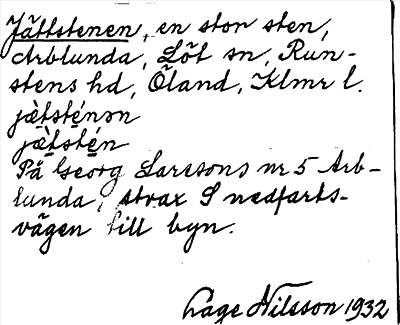 Jättstenen, en stor sten,
Arblunda, Löt sn, Run-
stens hd, Öland, Klmr l.
jæ̀tsténən
jæ̀tstén
På Georg Larssons nr 5 Arb-
lunda, strax S nedfarts-
vägen till byn.
Lage Nilsson 1932